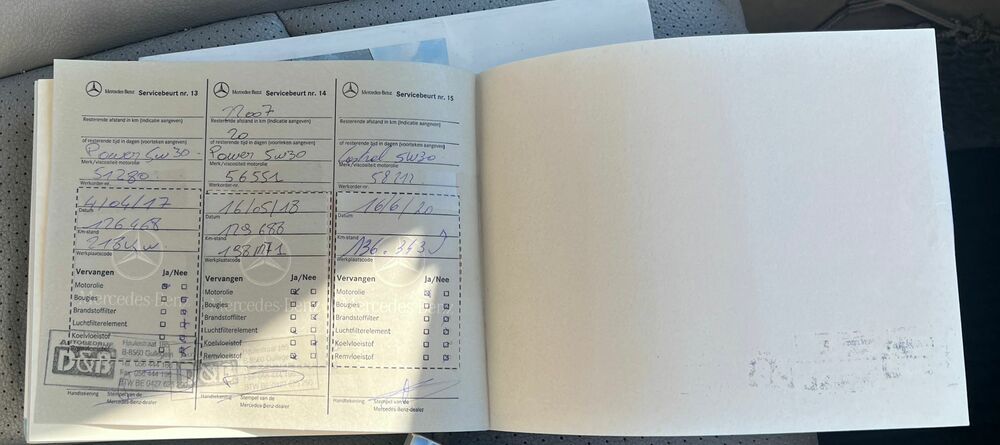 Mercedes-Benz Servicebeurt nr. 13
Resterende afstand in km (indicatie aangeven)
of resterende tijd in dagen (voorteken aangeven)
Power 5w30
Merk/viscositeit motorolie
51280
Werkorder-nr.
4/04/17
Datum
126468
Km-stand
Werkplaatscode
Vervangen Ja/Nee
Motorolie
Bougies
Brandstoffilter
Luchtfilterelement
Koelvloeistof
Remvloeistof
AUTOBEDRIJF
D&B
B-8560 Gullegem
Handtekening Stempel van de
Mercedes-Benz-dealer
Mercedes-Benz Servicebeurt nr. 14
Resterende afstand in km (indicatie aangeven)
20
of resterende tijd in dagen (voorteken aangeven)
Power 5w30
Merk/viscositeit motorolie
56551
Werkorder-nr.
16/05/18
Datum
129688
Km-stand
Werkplaatscode
Vervangen Ja/Nee
Motorolie
Bougies
Brandstoffilter
Luchtfilterelement
Koelvloeistof
Remvloeistof
D&B
Handtekening Stempel van de
Mercedes-Benz-dealer
Mercedes-Benz Servicebeurt nr. 15
Resterende afstand in km (indicatie aangeven)
of resterende tijd in dagen (voorteken aangeven)
5W30
Merk/viscositeit motorolie
58212
Werkorder-nr.
16/6/20
Datum
Km-stand
136.343
Werkplaatscode
Vervangen Ja/Nee
Motorolie
Bougies
Brandstoffilter
Luchtfilterelement
Koelvloeistof
Remvloeistof
Handtekening Stempel van de
Mercedes-Benz-dealer